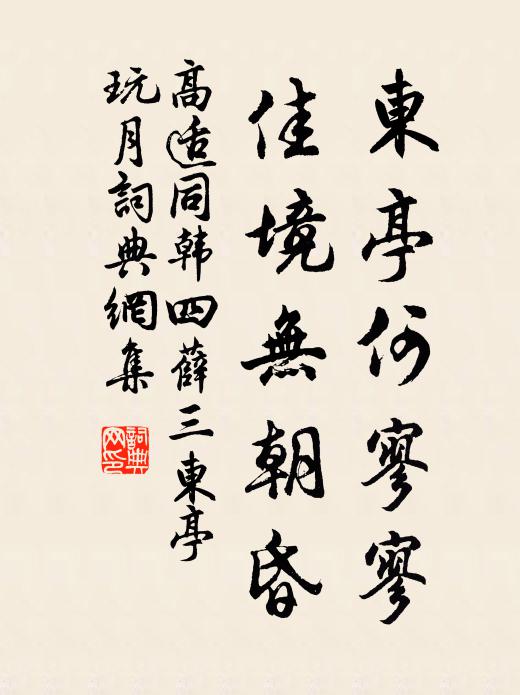 東亭何寥寥
佳境無朝昏
高适同韩四薛三東亭
玩月詞典網集
詞典网印